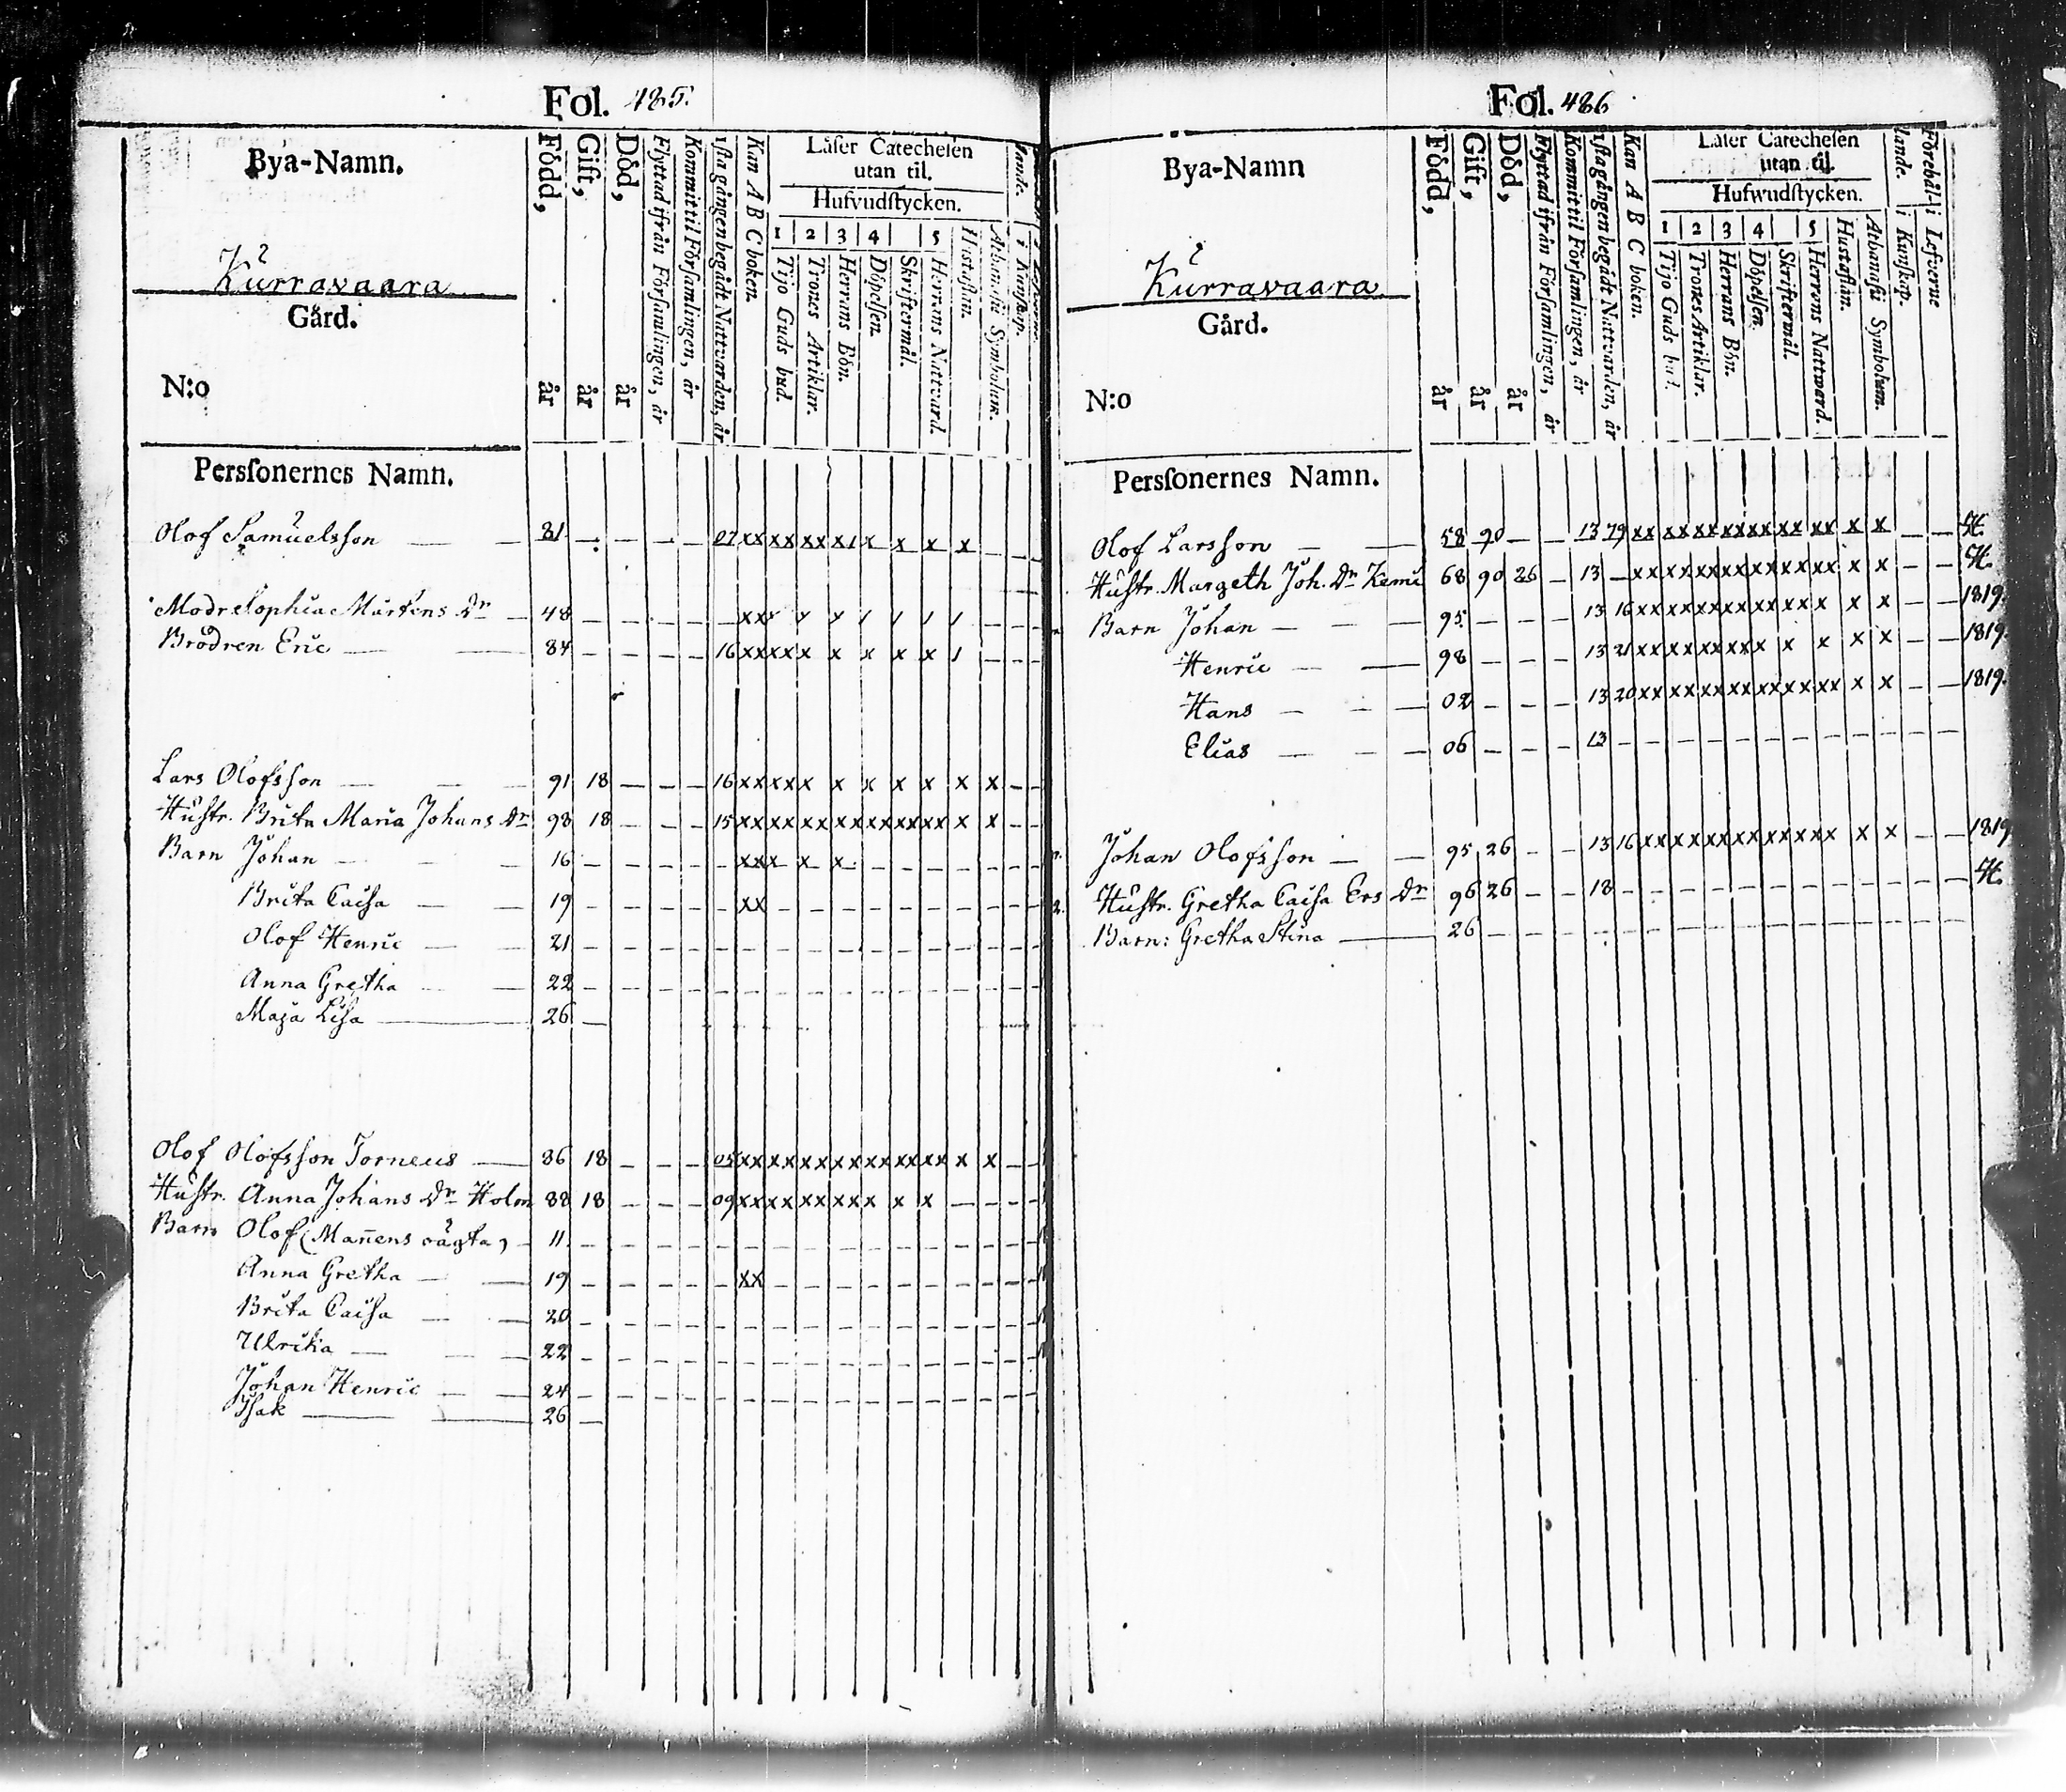 Fol. 485.
Bya-Namn.
Kurravaara
Gård.
N:o
Persſonernes Namn.
Född, år
Gift, år
Död, år
Flyttad ifrån Församlingen, år
Kommit til Församlingen, år
1sta gången begådt Nattvarden, år
Kan A B C boken.
Läser Catechesen utan til.
Hufvudstycken.
1 2 3 4 5
Tijo Guds bud.
Trones Artiklar.
Herrans Bön.
Döpelsen.
Skriftermål.
Herrans Nattvard.
Hustaflan.
Athanasii Symbolum.
Olof Samuelsson — — 81 — — — — — 07 xx xx xx x x x x x — —
Modr Sophia Mårtens Dr — 48 — — — — — —
Brodren Eric — — 84 — — — — 16 xx xx x x x x x / — — —
Lars Olofsson — — — 91 18 — — — 16 xx xx x x x x x x x — —
Hustr. Brita Maria Johans Dr 98 18 — — — 15 xx xx xx xx xx xx xx x x — —
Barn Johan — — — 16 — — — — — xx x x x — — — — — — —
Brita Caisa — — 19 — — — — — xx — — — — — — — — — —
Olof Henric — — 21 — — — — — — — — — — — — — — —
Anna Gretha — — 22 — — — — — — — — — — — — — — —
Maja Lisa — 26 —
Olof Olofsson Torneus — 86 18 — — — 05 xx xx xx xx xx xx xx x x — —
Hustr. Anna Johans Dr Holm 88 18 — — — 09 xx xx xx xx x x x — — — —
Barn Olof (Mannens oägta) — 11. — — — — — — — — — — — — — — —
Anna Gretha — — 19 — — — — — xx — — — — — — — — — —
Brita Caisa — — 20 — — — — — — — — — — — — — — —
Ulrika — — — 22 — — — — — — — — — — — — — — —
Johan Henric — — 24 — — — — — — — — — — — — — — —
Isak — — 26 —
Fol. 486
Bya-Namn
Kurravaara
Gård.
N:o
Persſonernes Namn.
Född, år
Gift, år
Död, år
Flyttad ifrån Församlingen, år
Kommit til Församlingen, år
1sta gången begådt Nattvarden, år
Kan A B C boken.
Läser Catechesen utan til.
Hufwudstycken.
1 2 3 4 5
Tijo Guds bud.
Trones Artiklar.
Herrans Bön.
Döpelsen.
Skriftermål.
Herrans Nattward.
Hustaflan.
Athanasii Symbolum.
i Kunskap.
i Lefverne
Olof Larsson — — 58 90 — — 13 79 xx xx xx xx xx xx xx x x — —
Hustr. Margeth Joh. Dr Kemi 68 90 26 — 13 — xx xx xx xx xx xx xx x x — —
Barn Johan — — — 95 — — — 13 16 xx xx xx xx xx xx x x x — — 1819.
Henric — — 98 — — — 13 21 xx xx xx xx x x x x x — — 1819.
Hans — — — 02 — — — 13 20 xx xx xx xx xx xx xx x x — — 1819.
Elias — — — 06 — — — 13 — — — — — — — — — — —
Johan Olofsson — — 95 26 — — 13 16 xx xx xx xx xx xx x x x — — 1819
Hustr. Gretha Caisa Ers Dr 96 26 — — 18 — — — — — — — — — — — —
Barn: Gretha Stina — 26 — — — — — — — — — — — — — — —